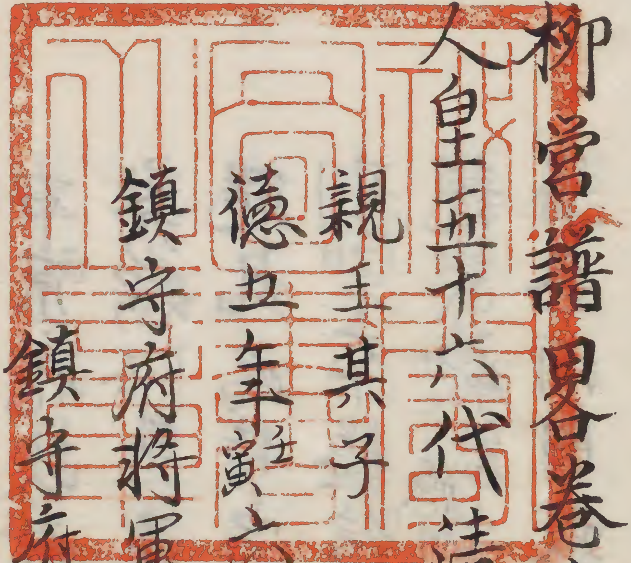 柳営譜畧巻
人皇五十六代清
親王其子
徳五年壬寅六
鎮守府将軍
鎮守府